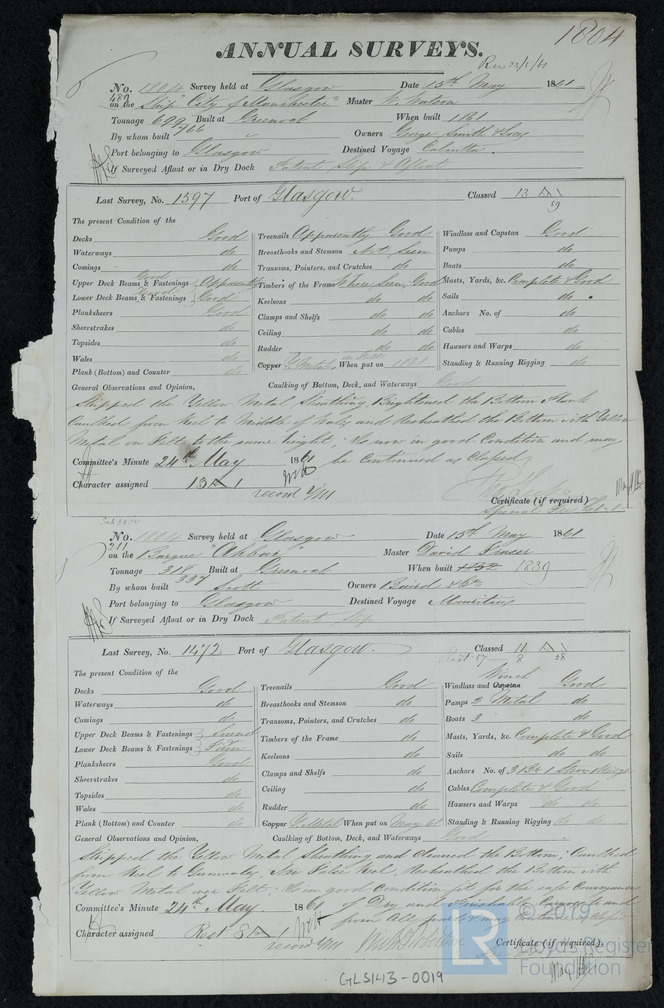 1804
ANNUAL SURVEYS.
Rec 23/5/61
No. 1804 Survey held at Glasgow Date 15th May 1861
on the Ship "City of Manchester" Master W. Watson
Tonnage Built at Greenock When built 1861
By whom built Owners George Smith & Sons
Port belonging to Glasgow Destined Voyage Calcutta
If Surveyed Afloat or in Dry Dock Patent Slip & Afloat
Last Survey, No. 1597 Port of Glasgow. Classed 13 A 1
59
The present Condition of the
Decks Good Treenails Apparently Good Windlass and Capstan Good
Waterways do Breasthooks and Stemson Not Seen Pumps do
Comings do Transoms, Pointers, and Crutches do Boats do
Upper Deck Beams & Fastenings Apparently Timbers of the Frame Where Seen, Good Masts, Yards, &c. Complete & Good
Lower Deck Beams & Fastenings Good Keelsons do do Sails do
Planksheers Good Clamps and Shelfs do do Anchors No. of do
Sheerstrakes do Ceiling do do Cables do
Topsides do Rudder do do Hawsers and Warps do
Wales do Copper Y. Metal When put on Standing & Running Rigging do
Plank (Bottom) and Counter do Caulking of Bottom, Deck, and Waterways Good
General Observations and Opinion,
Stripped the Yellow Metal Sheathing, Brightened the Bottom Plank
Caulked from Keel to Middle of Wales and Resheathed the Bottom with Yellow
Metal on Felt to the same height; Is now in good Condition and may
be continued as Classed
Committee's Minute 24th May 1861
Character assigned 13 A 1
Certificate (if required)
No. 1804 Survey held at Glasgow Date 15th May 1861
on the Barque "Akbar" Master David Fraser
Tonnage 318 Built at Greenock When built 1839
337
By whom built Scott Owners Baird & Co
Port belonging to Glasgow Destined Voyage Mauritius
If Surveyed Afloat or in Dry Dock Patent Slip
Last Survey, No. 1472 Port of Glasgow. Classed
The present Condition of the
Decks Good Treenails Good Windlass and Winch Good
Waterways do Breasthooks and Stemson do Pumps 2 Metal do
Comings do Transoms, Pointers, and Crutches do Boats 3 do
Upper Deck Beams & Fastenings Timbers of the Frame do Masts, Yards, &c. Complete & Good
Lower Deck Beams & Fastenings Keelsons do Sails do do
Planksheers Good Clamps and Shelfs do Anchors No. of
Sheerstrakes do Ceiling do Cables Complete & Good
Topsides do Rudder do Hawsers and Warps do do
Wales do Copper Y. Metal When put on May 61 Standing & Running Rigging do do
Plank (Bottom) and Counter do Caulking of Bottom, Deck, and Waterways Good
General Observations and Opinion,
Stripped the Yellow Metal Sheathing and cleaned the Bottom; Caulked
from Keel to Gunwale, New False Keel, Resheathed the Bottom with
Yellow Metal over Felt; Is in good condition fit for the safe Conveyance
of Dry and Perishable Cargoes to and
from All parts
Committee's Minute 24th May 1861
Character assigned Rest 8 A 1
Certificate (if required).
GLS143-0019
LR
© 2019
Lloyd's Register
Foundation